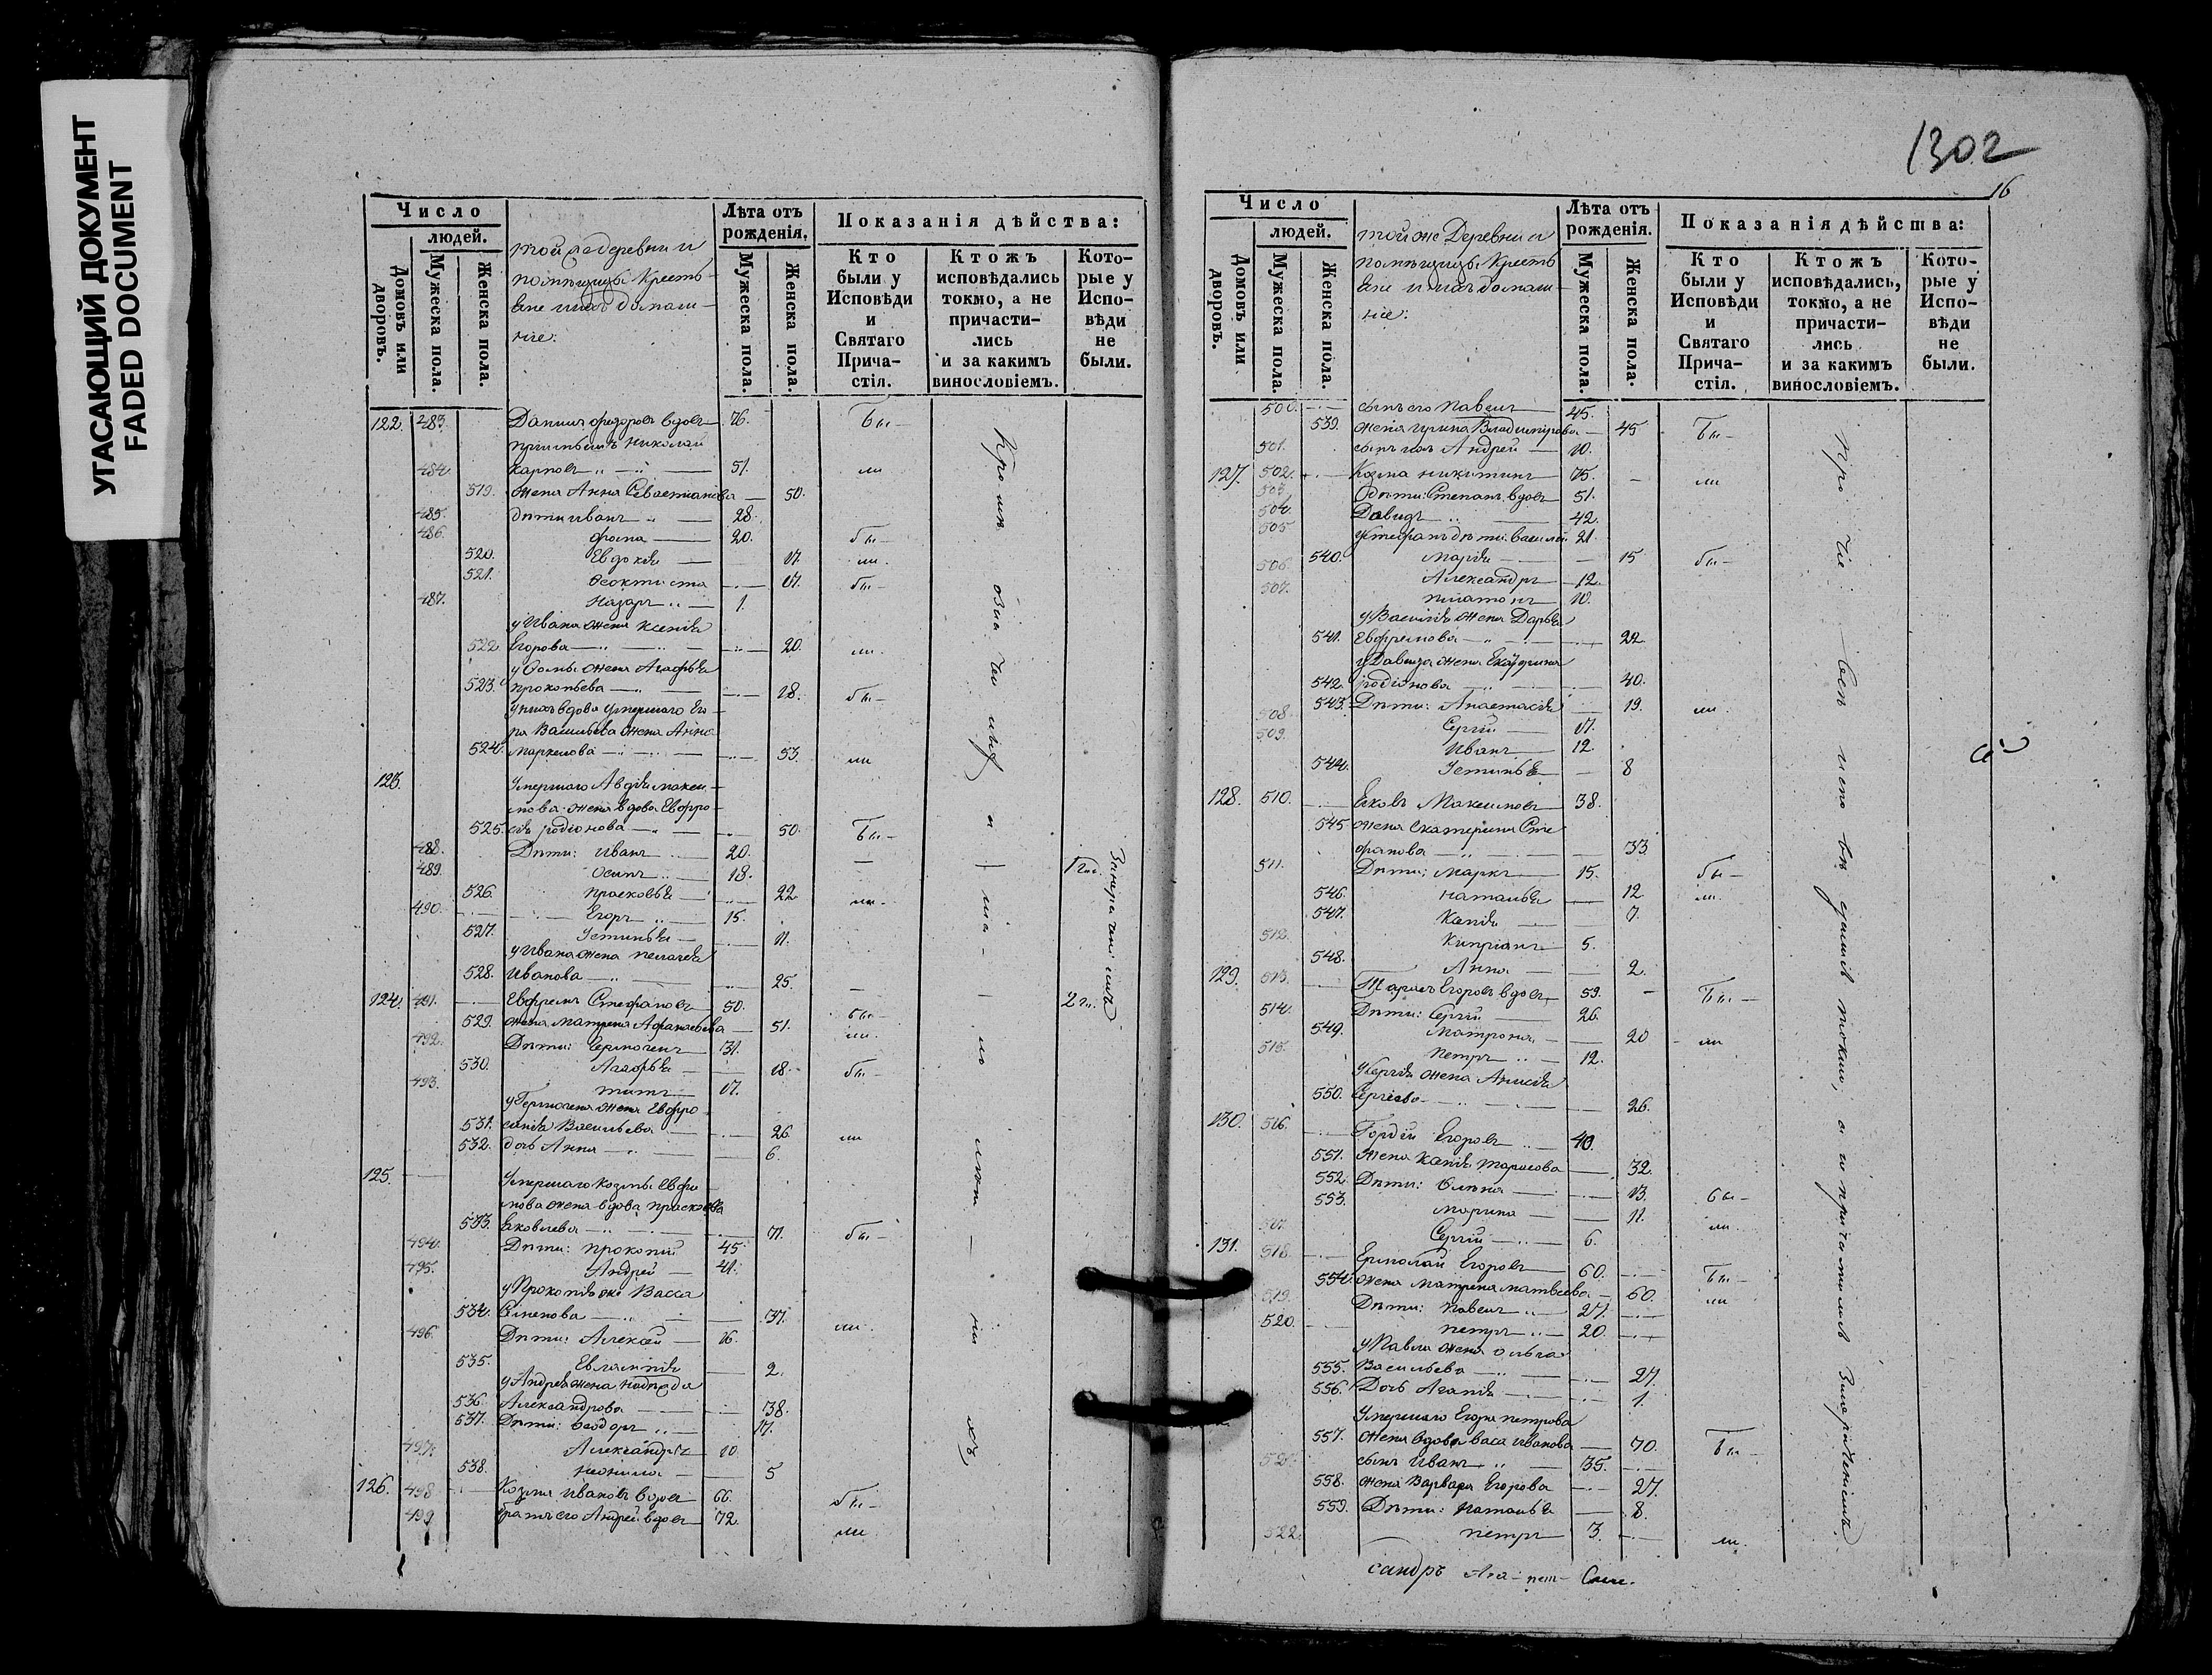 УГАСАЮЩИЙ ДОКУМЕНТ
FADED DOCUMENT
Число
людей.
Домовъ или дворовъ.
Мужеска пола.
Женска пола.
той же деревни и
помѣщицы Кресть-
яне и ихъ домаш-
ніе:
Лѣта отъ рожденія.
Мужеска пола.
Женска пола.
Показанія дѣйства:
Кто были у Исповѣди и Святаго Прича-стія.
Ктожъ исповѣдались токмо, а не причасти-лись и за какимъ винословіемъ.
Кото-рые у Испо-вѣди не были.
122. 483. Даниилъ Федоровъ вдовъ 76. бы-
Николай
484. Карповъ 51. ли
519. жена Анна Севастианова 50.
485. дѣти Иванъ 28.
486. Фома 20. бы-
520. Евдокія 17. ли.
521. Феоктиста 17. бы-
487. Назаръ 1.
у Ивана жена Ксенія
522. Егорова 20. ли.
у Фомы жена Агафья
523. Прокопьева 18. бы-
у нихъ вдова умершаго Его-
ра Васильева жена Анна
524. Маркелова 53. ли
123. Умершаго Авдѣя Макси-
мова жена вдова Евфро-
525. сія Родіонова 50. бы-
488. Дѣти: Иванъ 20.
489. Осипъ 18.
526. Прасковья 22 ли.
490. Егоръ 15.
527. Устинья 11.
у Ивана жена Пелагея
528. Иванова 25.
124. 491. Ефремъ Стефановъ 50. бы-
529. жена Матрена Афанасьева 51. ли.
492. Дѣти: Ермогенъ 31.
530. Агафья 18. бы-
493. Титъ 17.
у Гермогена жена Евфро-
531. синія Васильева 26. ли
532. дочь Анна 6.
125. Умершаго Козмы Ефи-
мова жена вдова Прасковья
533. Яковлева 71. бы-
494. Дѣти: Прокопій 45
495. Андрей 41.
у Прокопія же. Васса
534. Семенова 37. ли.
496. Дѣти: Алексѣй 16.
535. Евлампія 2.
у Андрея жена Надежда
536. Александрова 38.
537. Дѣти: Феодора 17.
497. Александръ 10.
538. Неонила 5
126. 498 Козма Ивановъ вдовъ 66. бы-
499 братъ его Андрей вдовъ 72. ли.
1302
16
Число
людей.
Домовъ или дворовъ.
Мужеска пола.
Женска пола.
той же Деревни и
помѣщицы Кресть
яне и ихъ домаш-
ніе:
Лѣта отъ рожденія.
Мужеска пола.
Женска пола.
Показанія дѣйства:
Кто были у Исповѣди и Святаго Прича-стія.
Ктожъ исповѣдались, токмо, а не причасти-лись и за какимъ винословіемъ.
Кото-рые у Испо-вѣди не были.
500. сынъ его Павелъ 45.
539. жена Ирина Владимірова 45 бы-
501. сынъ ихъ Андрей 10.
127. 502. Козма Никитинъ 75. ли
503. дѣти: Степанъ вдовъ 51.
504. Давидъ 42.
505 у Стефана дѣти: Василій 21.
540. Марія 15 бы-
506. Александръ 12.
507. Платонъ 10.
у Василія жена Дарья
541. Ефремова 22
у Давида жена Екатерина
542. Родіонова 40.
543. Дѣти: Анастасія 19. ли.
508. Сергій 17.
509. Иванъ 12.
544. Устинья 8
128. 510. Яковъ Максимовъ 38.
545 жена Екатерина Сте
фанова 33.
511. Дѣти: Маркъ 15. бы-
546. Наталья 12 ли.
547. Капія 7.
512. Кипріанъ 5.
548. Анна 2.
129. 513. Тарасъ Егоровъ вдовъ 59. бы-
514. Дѣти: Сергій 26.
549. Матрона 20 ли
515. Петръ 12.
у Сергія жена Анисія
550. Сергіева 26.
130. 516. Гордій Егоровъ 40.
551. жена Капія Тарасова 32.
552. Дѣти: Олена 13. бы-
553. Марина 11. ли.
517. Сергій 6.
131. 518. Ермолай Егоровъ 60. бы-
554. жена Матрена Матвѣева 60. ли
519. Дѣти: Павелъ 27.
520. Петръ 20.
у Павла жена Ольга
555. Васильева 27.
556. Дочь Агапія 1.
Умершаго Егора Петрова
557. жена вдова Васа Иванова 70. бы-
521. сынъ Иванъ 35.
558. жена Варвара Егорова 27.
559. Дѣти: Наталья 8.
522. Петръ 3. ли.
сандръ